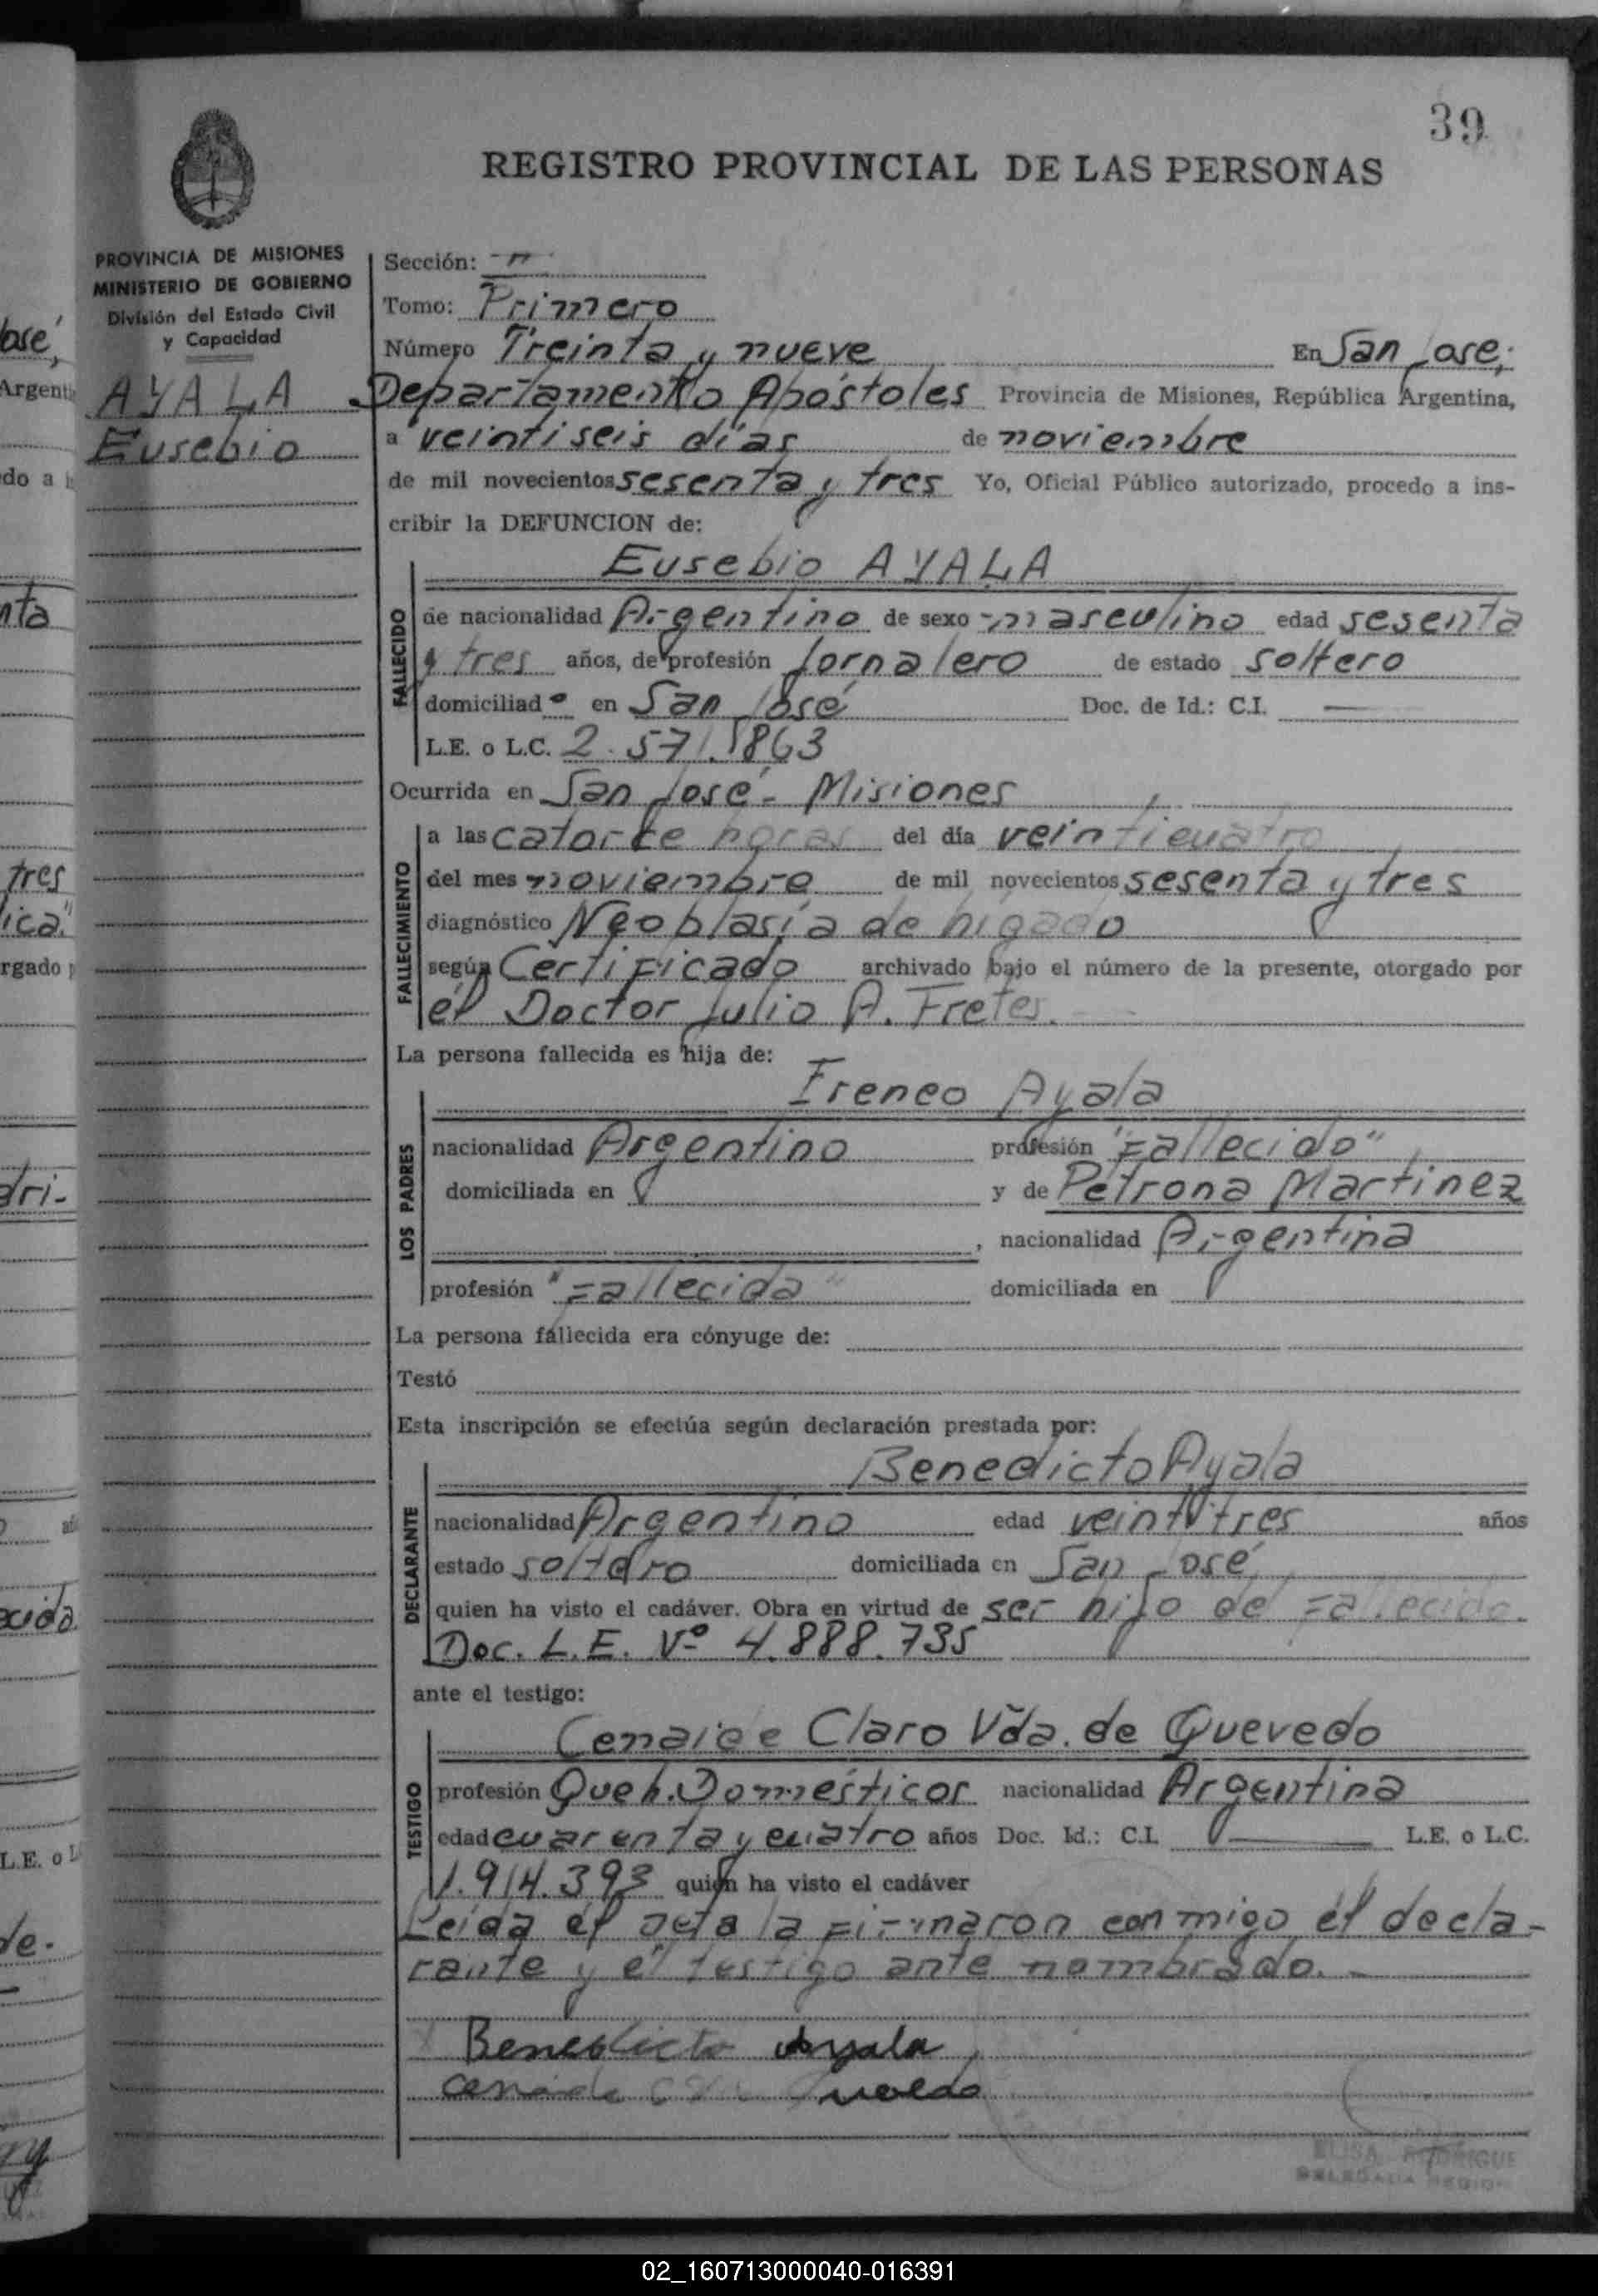 39
REGISTRO PROVINCIAL DE LAS PERSONAS
PROVINCIA DE MISIONES
MINISTERIO DE GOBIERNO
División del Estado Civil
y Capacidad
AYALA
Eusebio
Sección:
Tomo: Primero
Número Treinta y nueve En San José;
Departamento Apóstoles Provincia de Misiones, República Argentina,
a veintiseis días de noviembre
de mil novecientos sesenta y tres Yo, Oficial Público autorizado, procedo a ins-
cribir la DEFUNCION de:
Eusebio AYALA
FALLECIDO
de nacionalidad Argentino de sexo masculino edad sesenta
y tres años, de profesión Jornalero de estado soltero
domiciliado en San José Doc. de Id.: C.I. —
L.E. o L.C. 2.571.863
Ocurrida en San José - Misiones
FALLECIMIENTO
a las catorce horas del día veinticuatro
del mes noviembre de mil novecientos sesenta y tres
diagnóstico Neoplasia de hígado
según Certificado archivado bajo el número de la presente, otorgado por
él Doctor Julio A. Fretes.
La persona fallecida es hija de:
Ireneo Ayala
LOS PADRES
nacionalidad Argentino profesión "Fallecido"
domiciliada en y de Petrona Martinez
, nacionalidad Argentina
profesión "Fallecida" domiciliada en
La persona fallecida era cónyuge de:
Testó
Esta inscripción se efectúa según declaración prestada por:
Benedicto Ayala
DECLARANTE
nacionalidad Argentino edad veintitres años
estado soltero domiciliada en San José
quien ha visto el cadáver. Obra en virtud de ser hijo del Fallecido.
Doc. L.E. Nº 4.888.735
ante el testigo:
Claro Vda. de Quevedo
TESTIGO
profesión Queh. Domésticos nacionalidad Argentina
edad cuarenta y cuatro años Doc. Id.: C.I. — L.E. o L.C.
1.914.393 quien ha visto el cadáver
Leida el acta la firmaron conmigo él decla-
rante y él testigo ante nombrado. -
Benedicto Ayala
ELISA
02_160713000040-016391